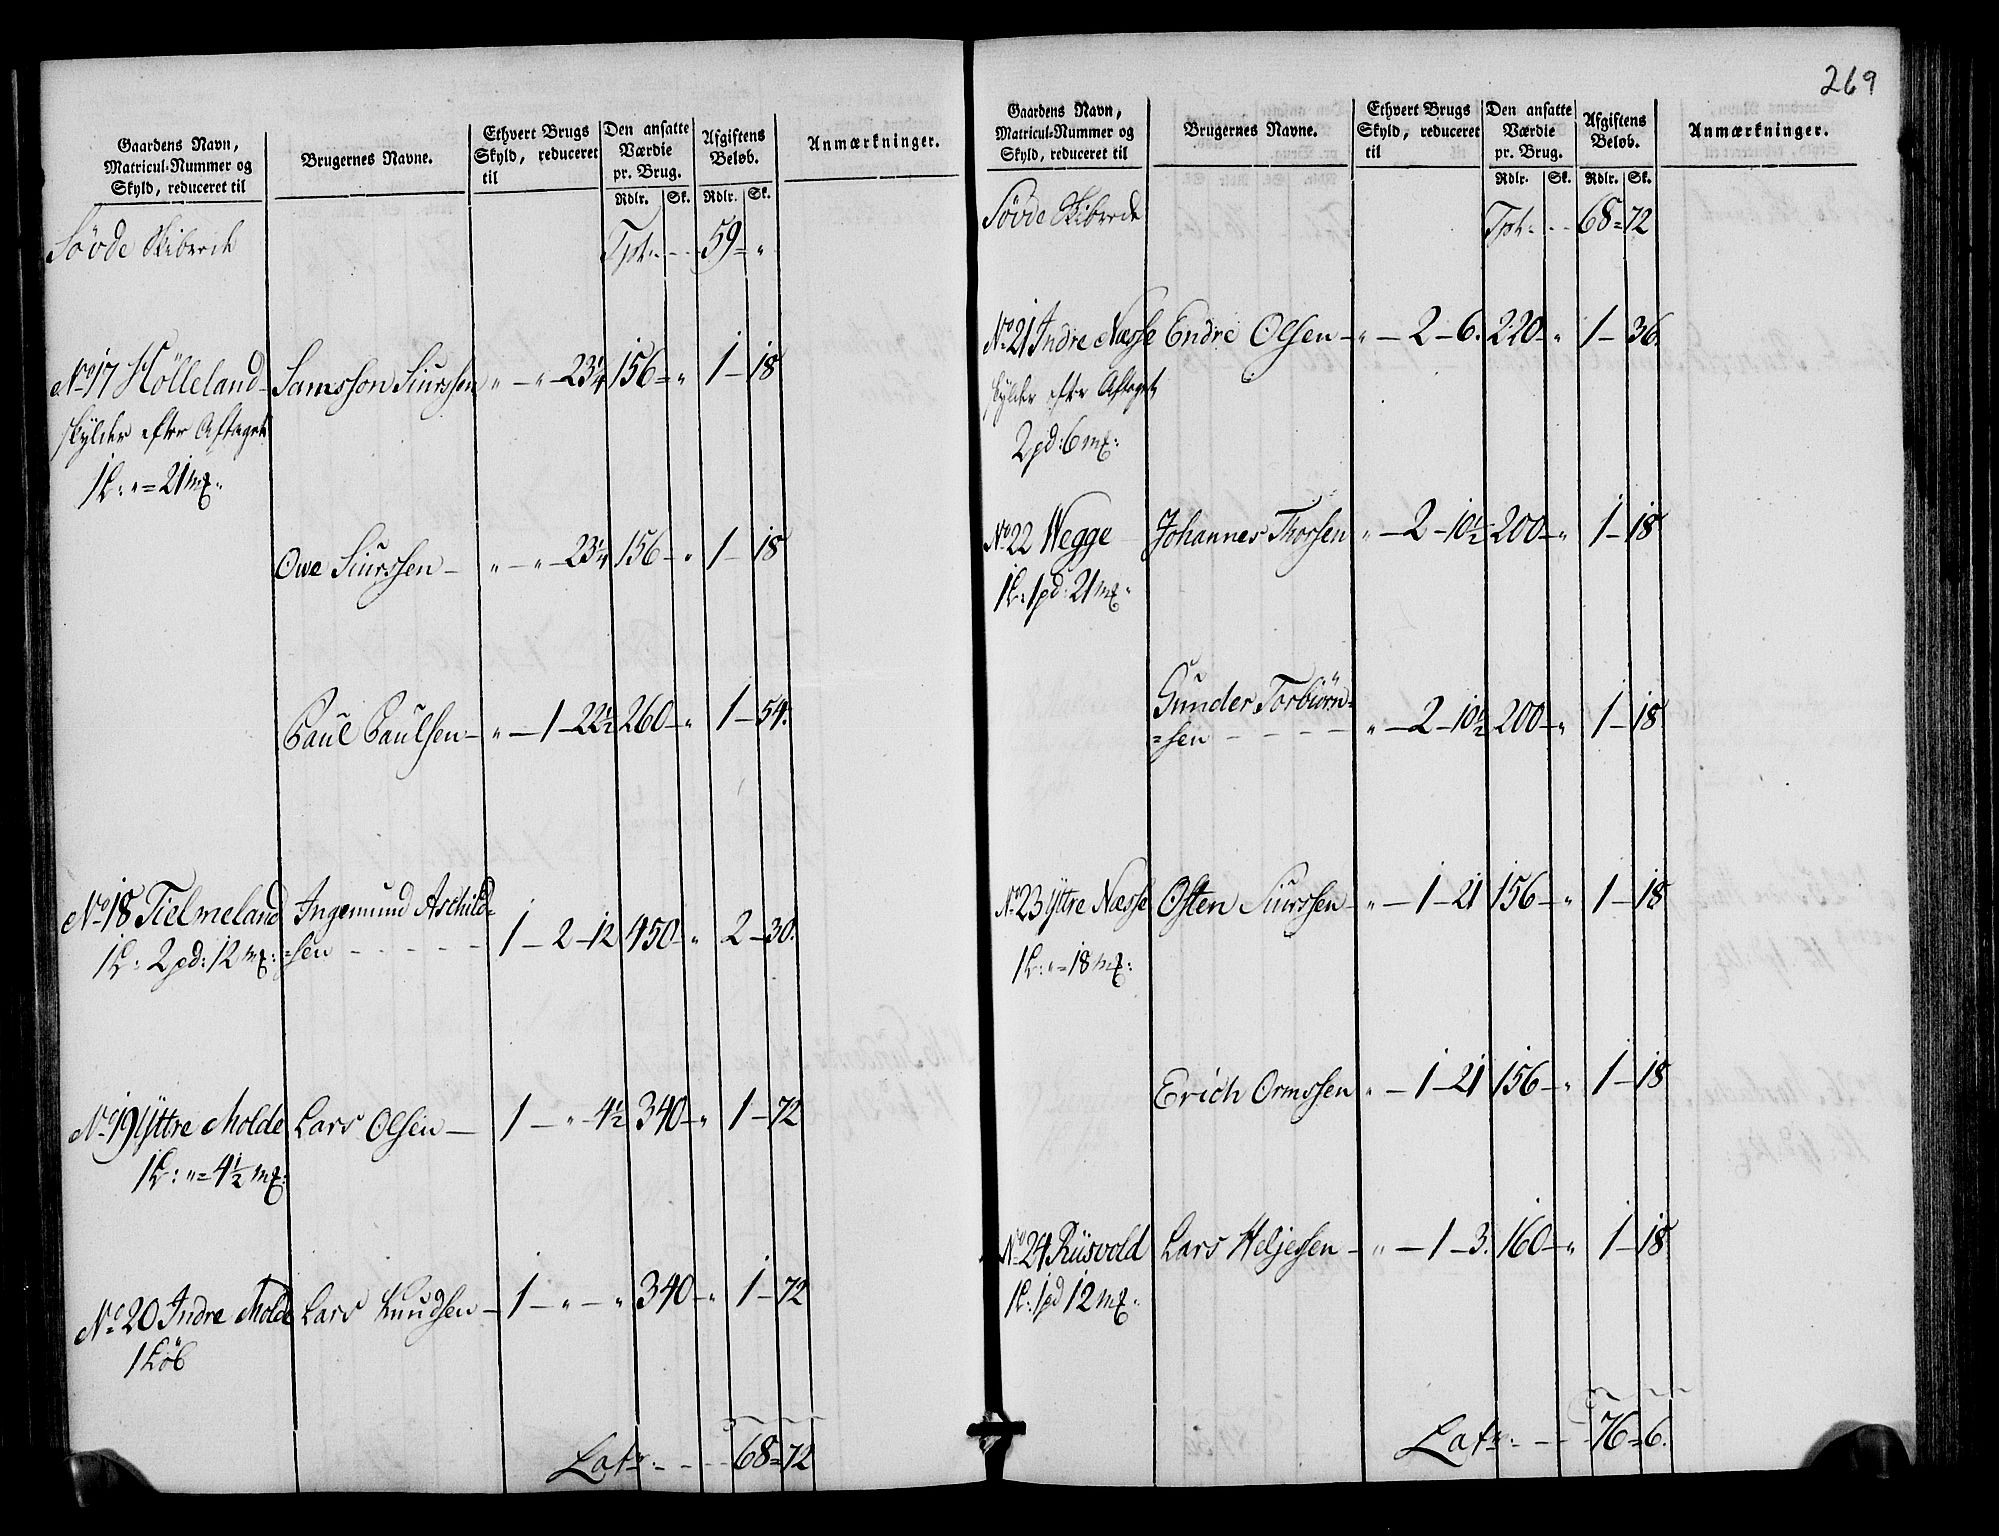 Gaardens Navn,
Matricul-Nummer og
Skyld, reduceret til
Brugernes Navne.
Ethvert Brugs
Skyld, reduceret
til
Den ansatte
Værdie
pr. Brug.
Rdlr. Sk.
Afgiftens
Beløb.
Rdlr. Sk.
Anmærkninger.
Søvde Skibrede Tpt: - - - 59 = "
No 17 Hölleland - Samsson Siurssen " - " - 23 1/4 156 - " 1 - 18
skylder efter Aftaget
1 L: " = 21 mk.
Owe Siurssen - " - " - 23 1/4 156 - " 1 - 18
Paul Paulsen - " - 1 - 22 1/2 260 - " 1 - 54.
No 18 Tielmeland Ingemund Aschild=
1 L: 2 pd: 12 mk: =sen - - - - - 1 - 2 - 12 450 - " 2 - 30.
No 19 Yttre Molde Lars Olsen - 1 - " - 4 1/2 340 - " 1 - 72
1 L: " = 4 1/2 mk:
No 20 Indre Molde Lars Knudsen - 1 - " - " 340 - " 1 - 72
1 Löb
Latr: - - - 68 = 72
269
Gaardens Navn,
Matricul-Nummer og
Skyld, reduceret til
Brugernes Navne.
Ethvert Brugs
Skyld, reduceret
til
Den ansatte
Værdie
pr. Brug.
Rdlr. Sk.
Afgiftens
Beløb.
Rdlr. Sk.
Anmærkninger.
Søvde Skibrede Tpt: - - - 68 = 72
No 21 Indre Næsse Endre Olsen - " - 2 - 6. 220 - " 1 - 36.
skylder efter Aftaget
2 pd: 6 mk:
No 22 Wegge Johannes Thorsen " - 2 - 10 1/2 200 - " 1 - 18
1 L: 1 pd: 21 mk.
Gunder Torbiörn=
=sen - - - - " - 2 - 10 1/2 200 - " 1 - 18
No 23 Yttre Næsse Osten Siurssen - " - 1 - 21 156 - " 1 - 18
1 L: " = 18 mk:
Erich Ormssen " - 1 - 21 156 - " 1 - 18
No 24 Riisvold Lars Heljesen - " - 1 - 3. 160 - " 1 - 18
1 L: 1 pd 12 mk.
Latr: - - - 76 = 6.